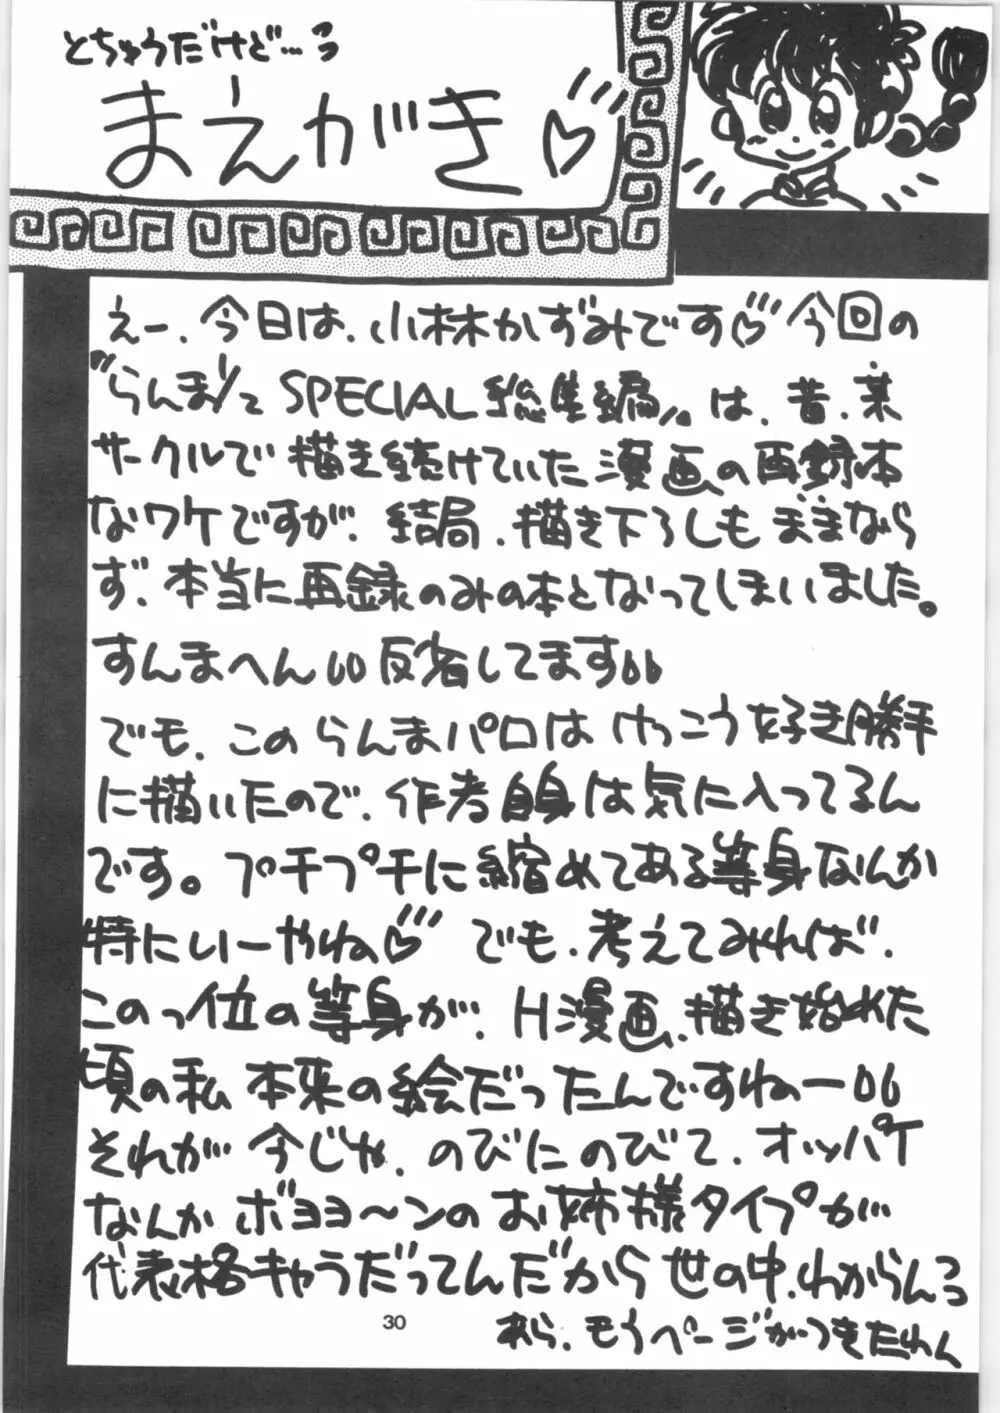 とちゅうだけど…っ
まえがき♡
えー、今日は、小林かずみです♡今回の
"らんま1/2 SPECIAL総集編"は、昔、某
サークルで描き続けていた漫画の再録本
なワケですが、結局、描き下ろしもままなら
ず、本当に再録のみの本となってしまいました。
すんまへん反省してます
でも、このらんまパロはけっこう好き勝手
に描いたので、作者自身は気に入ってるん
です。プチプチに縮めてある等身なんか
特にいーやね♡でも、考えてみれば、
このっ位の等身が、H漫画、描き始めた
頃の私本来の絵だったんですねー
それが今じゃ、のびにのびて、オッパイ
なんかボヨヨ〜ンのお姉様タイプが
代表格キャラだってんだから世の中、わからんっ
あら、もうページがつきたわん
30